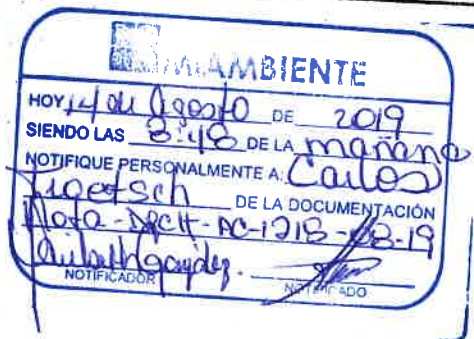 MIAMBIENTE
HOY 14 de Agosto DE 2019
SIENDO LAS 8:48 DE LA mañana
NOTIFIQUE PERSONALMENTE A: Carlos
DE LA DOCUMENTACIÓN
Nota-DRCH-AC-1218-08-19
NOTIFICADOR NOTIFICADO